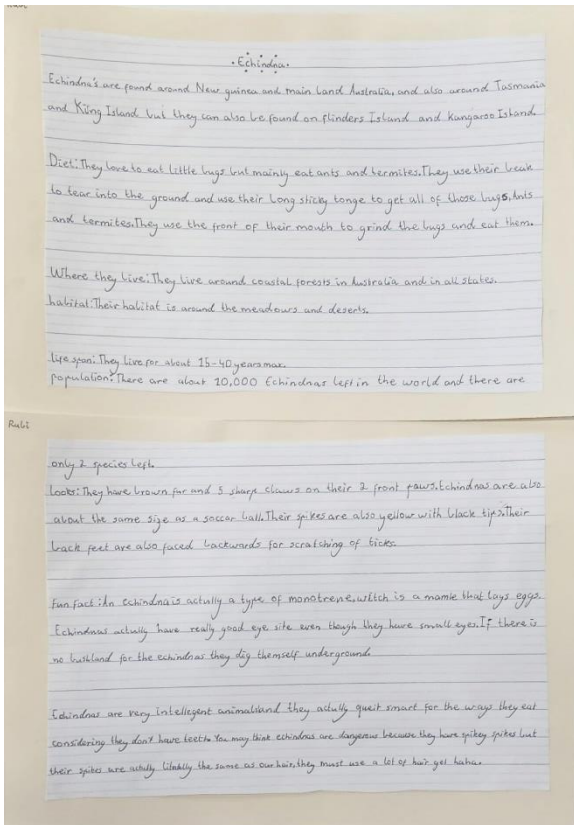 Echindna.
Echindna's are found around New guinea and main Land Australia, and also around Tasmania
and King Island but they can also be found on flinders Island and kangaroo Island.
Diet: They love to eat little bugs but mainly eat ants and termites. They use their beak
to tear into the ground and use their long sticky tonge to get all of those bugs, Ants
and termites. They use the front of their mouth to grind the bugs and eat them.
Where they live: They live around coastal forests in Australia and in all states.
habitat: Their habitat is around the meadours and deserts.
Life span: They live for about 15-40 years max.
population: There are about 10,000 Echindnas left in the world and there are
Rubi
only 2 species left.
Looks: They have brown fur and 5 sharp claws on their 2 front paws. Echindnas are also
about the same size as a soccar ball. Their spikes are also yellow with black tips. Their
back feet are also faced backwards for scratching of ticks.
Fun fact: An echindna is actully a type of monotrene, witch is a mamle that lays eggs.
Echindnas actully have really good eye site even though they have small eyes. If there is
no bushland for the echindnas they dig themself underground.
Echindnas are very intellegent animals and they actully queit smart for the ways they eat
considering they don't have teeth. You may think echindnas are dangerous because they have spikey spikes but
their spikes are actully litrally the same as our hair, they must use a lot of hair gel haha.